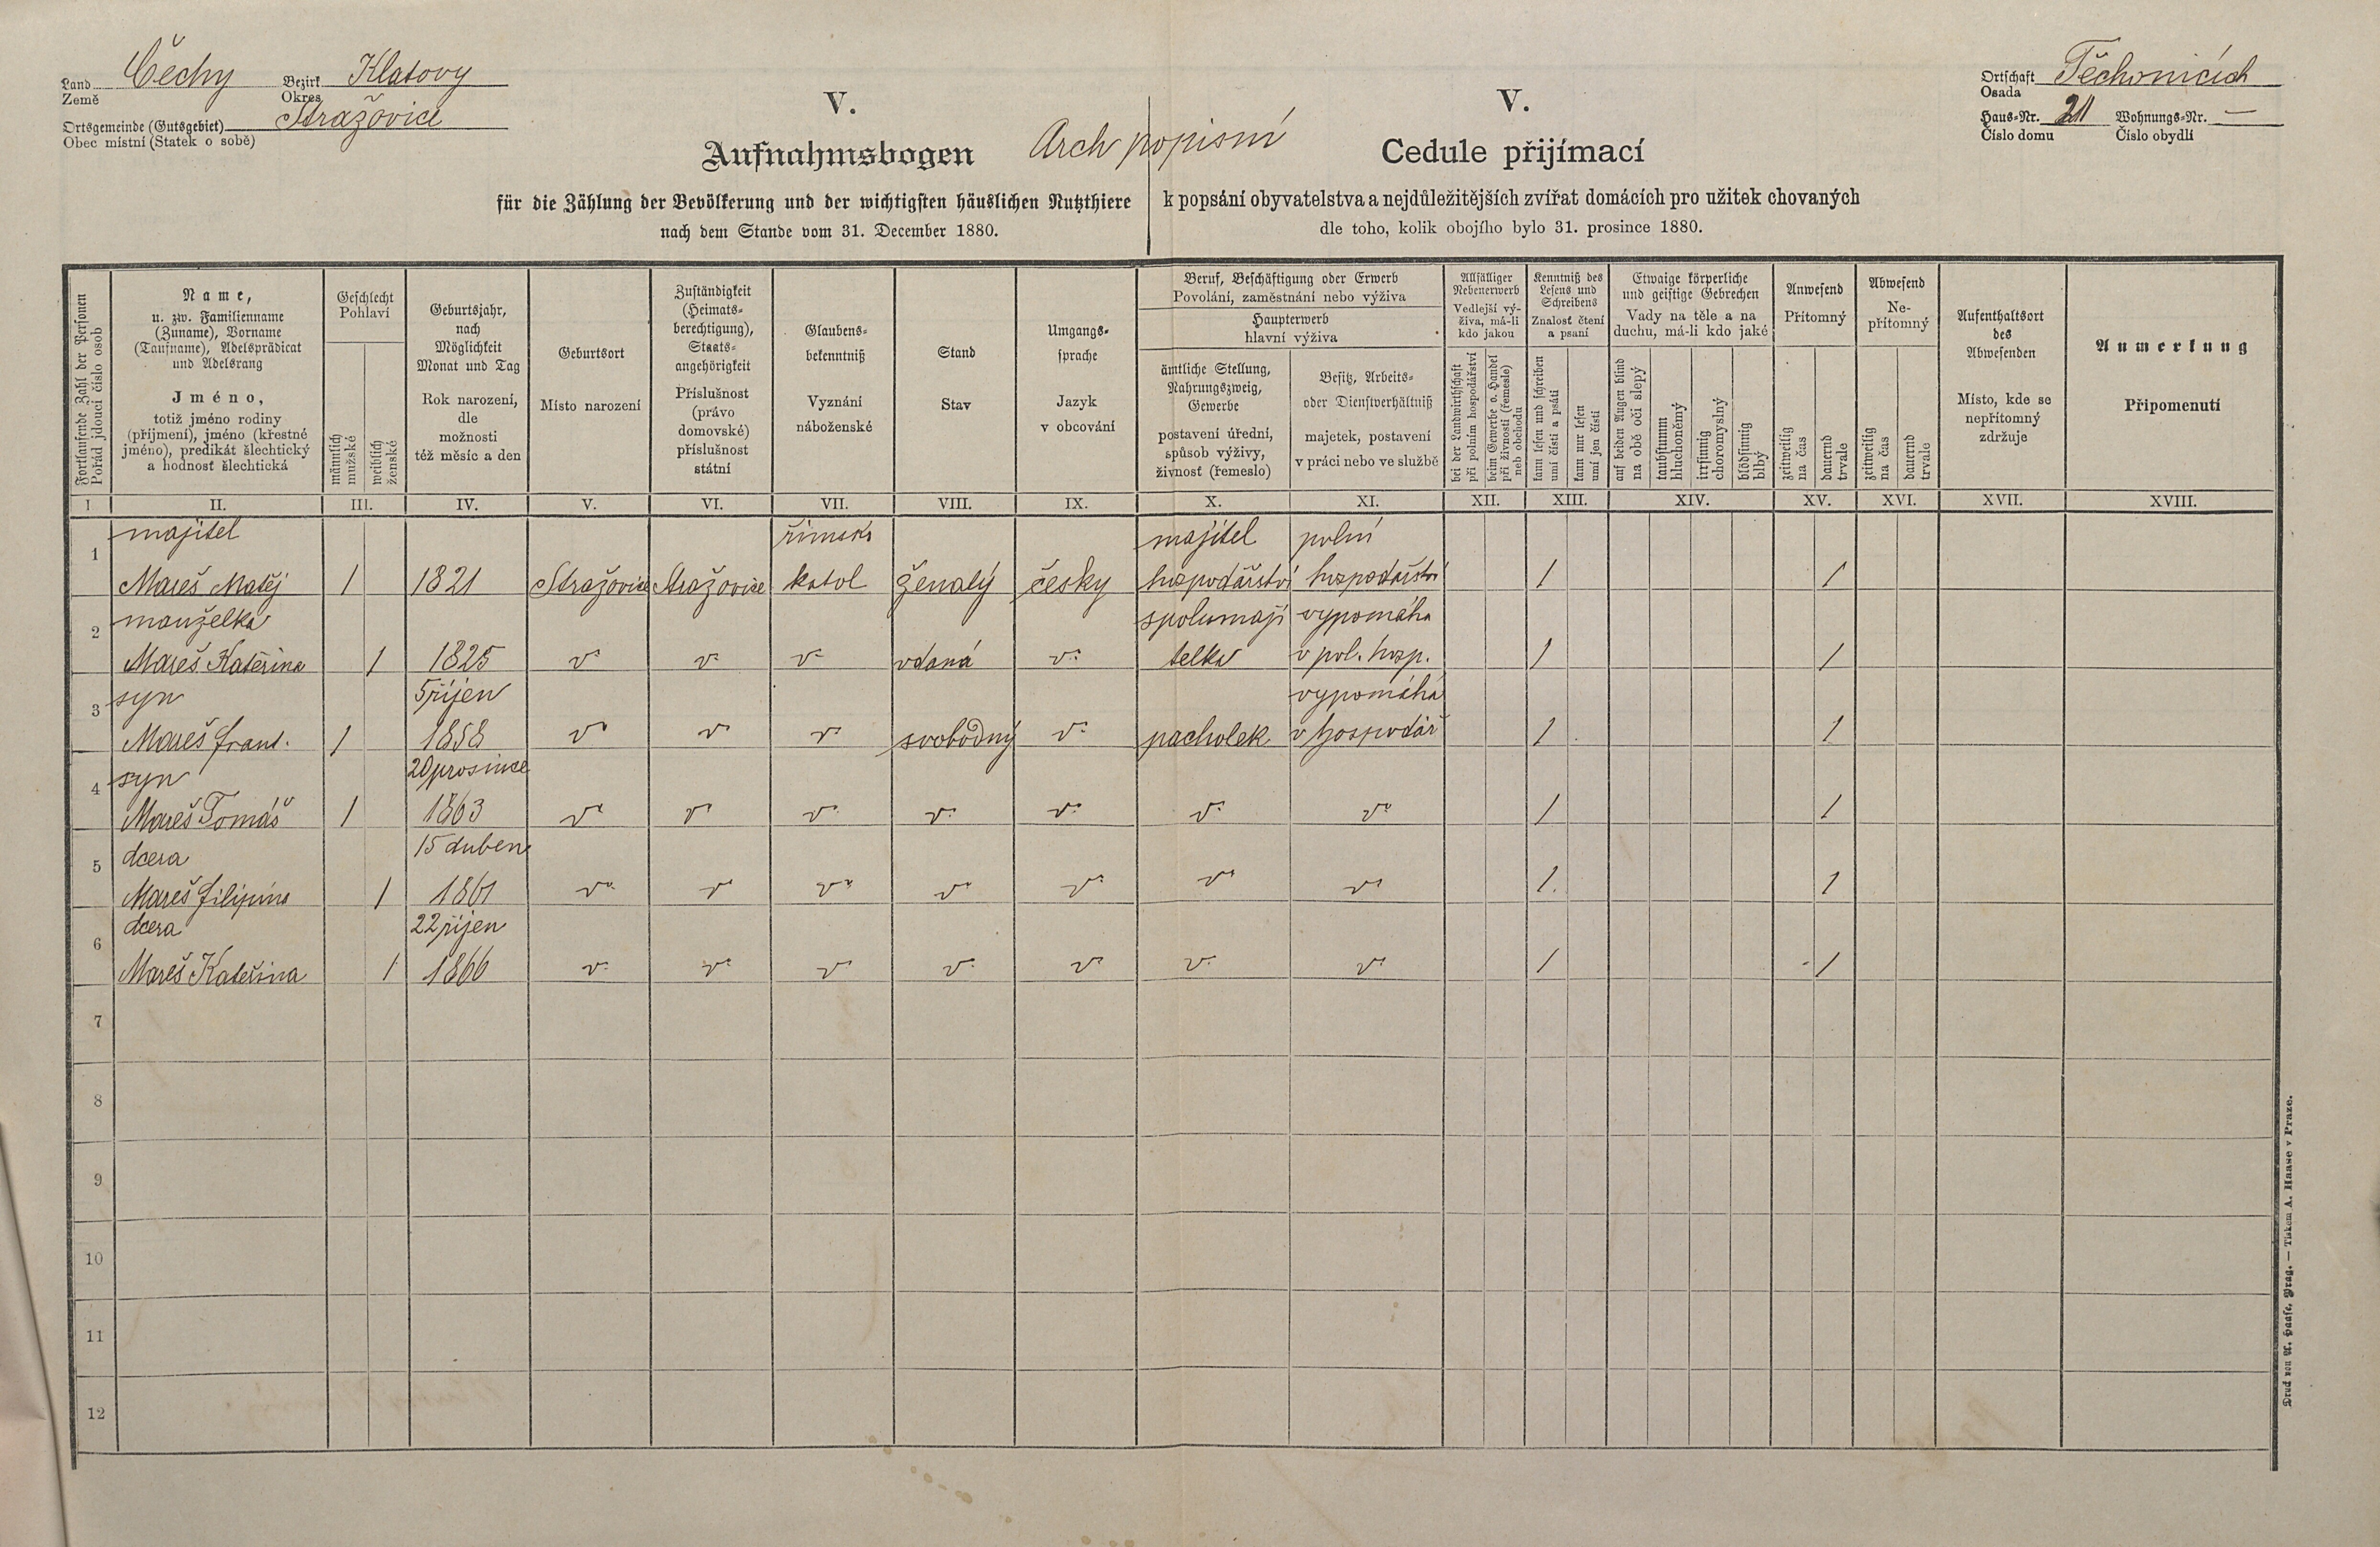 Land Čechy Bezirk Klatovy
Země Okres
Ortsgemeinde (Gutsgebiet) Stražovice
Obec místní (Statek o sobě)
Ortschaft Těchonicích
Osada
Haus-Nr. 21 Wohnungs-Nr. —
Číslo domu Číslo obydlí
V.
Aufnahmsbogen
für die Zählung der Bevölkerung und der wichtigsten häuslichen Nutzthiere
nach dem Stande vom 31. December 1880.
Arch popisní
V.
Cedule přijímací
k popsání obyvatelstva a nejdůležitějších zvířat domácích pro užitek chovaných
dle toho, kolik obojího bylo 31. prosince 1880.
Fortlaufende Zahl der Personen
Pořád jdoucí číslo osob
Name,
u. zw. Familienname
(Zuname), Vorname
(Taufname), Adelsprädicat
und Adelsrang
Jméno,
totiž jméno rodiny
(příjmení), jméno (křestné
jméno), predikát šlechtický
a hodnosť šlechtická
Geschlecht
Pohlaví
männlich
mužské
weiblich
ženské
Geburtsjahr,
nach
Möglichkeit
Monat und Tag
Rok narození,
dle
možnosti
též měsíc a den
Geburtsort
Místo narození
Zuständigkeit
(Heimats-
berechtigung),
Staats-
angehörigkeit
Příslušnost
(právo
domovské)
příslušnost
státní
Glaubens-
bekenntniß
Vyznání
náboženské
Stand
Stav
Umgangs-
sprache
Jazyk
v obcování
Beruf, Beschäftigung oder Erwerb
Povolání, zaměstnání nebo výživa
Haupterwerb
hlavní výživa
ämtliche Stellung,
Nahrungszweig,
Gewerbe
postavení úřední,
spůsob výživy,
živnosť (řemeslo)
Besitz, Arbeits-
oder Dienstverhältniß
majetek, postavení
v práci nebo ve službě
Allfälliger
Nebenerwerb
Vedlejší vý-
živa, má-li
kdo jakou
bei der Landwirthschaft
při polním hospodářství
beim Gewerbe o. Handel
při živnosti (řemesle)
neb obchodu
Kenntniß des
Lesens und
Schreibens
Znalosť čtení
a psaní
kann lesen und schreiben
umí čísti a psáti
kann nur lesen
umí jen čísti
Etwaige körperliche
und geistige Gebrechen
Vady na těle a na
duchu, má-li kdo jaké
auf beiden Augen blind
na obě oči slepý
taubstumm
hluchoněmý
irrsinnig
choromyslný
blödsinnig
blbý
Anwesend
Přítomný
zeitweilig
na čas
dauernd
trvale
Abwesend
Ne-
přítomný
zeitweilig
na čas
dauernd
trvale
Aufenthaltsort
des
Abwesenden
Místo, kde se
nepřítomný
zdržuje
Anmerkung
Připomenutí
I II. III. IV. V. VI. VII. VIII. IX. X. XI. XII. XIII. XIV. XV. XVI. XVII. XVIII.
majitel římsko majitel polní
1 Mareš Matěj 1 1821 Stražovice Stražovice katol ženatý česky hospodářství hospodářství 1 1
manželka spolumaji vypomáhá
2 Mareš Kateřina 1 1825 v v v vdaná v telka v pol. hosp. 1 1
syn 5 říjen vypomáhá
3 Mareš Frant. 1 1858 v v v svobodný v pacholek v hospodář 1 1
syn 20 prosince
4 Mareš Tomáš 1 1863 v v v v v v v 1 1
dcera 15 duben
5 Mareš Filipína 1 1861 v v v v v v v 1 1
dcera 22 říjen
6 Mareš Kateřina 1 1866 v v v v v v v 1 1
7
8
9
10
11
12
Druck von A. Haase, Prag. — Tiskem A. Haase v Praze.